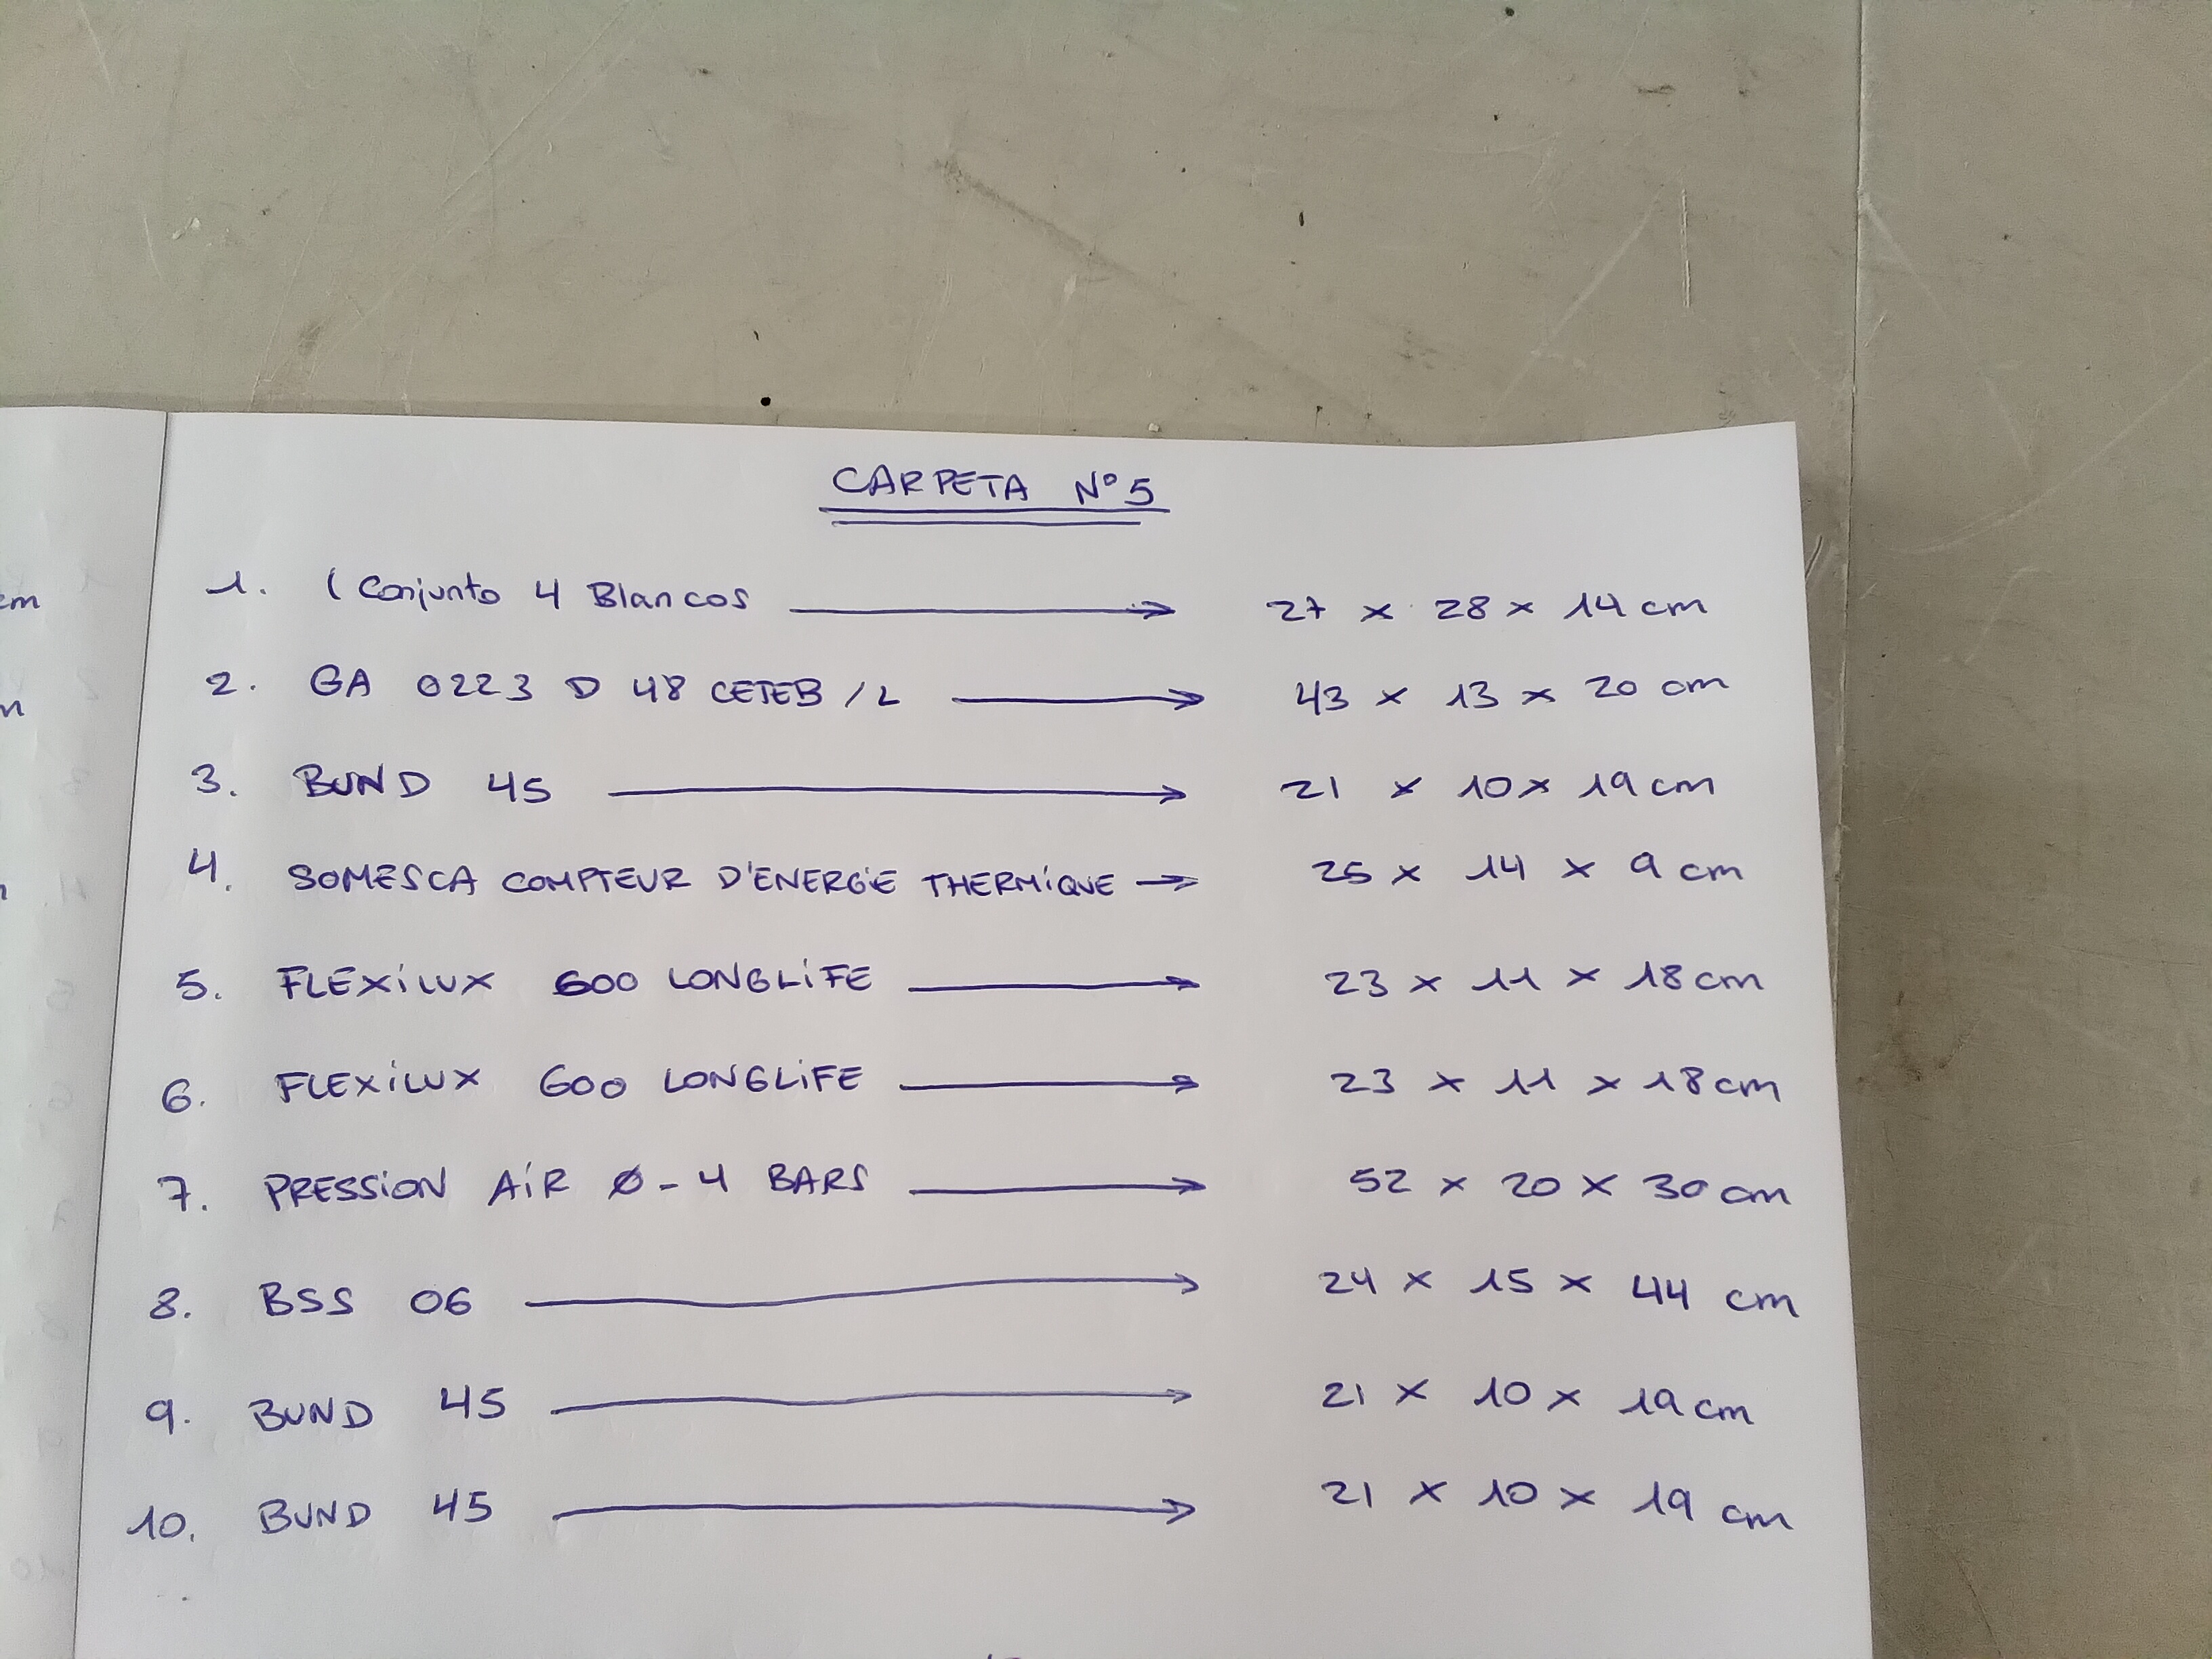 CARPETA Nº5
1. (Conjunto 4 Blancos → 27 x 28 x 14 cm
2. GA 0223 D 48 CETEB /L → 43 x 13 x 20 cm
3. BUND 45 → 21 x 10 x 19 cm
4. SOMESCA COMPTEUR D'ENERGIE THERMiQUE → 25 x 14 x 9 cm
5. FLEXiLUX 600 LONGLiFE → 23 x 11 x 18 cm
6. FLEXiLUX 600 LONGLiFE → 23 x 11 x 18 cm
7. PRESSiON AiR Ø - 4 BARS → 52 x 20 x 30 cm
8. BSS 06 → 24 x 15 x 44 cm
9. BUND 45 → 21 x 10 x 19 cm
10. BUND 45 → 21 x 10 x 19 cm
cm